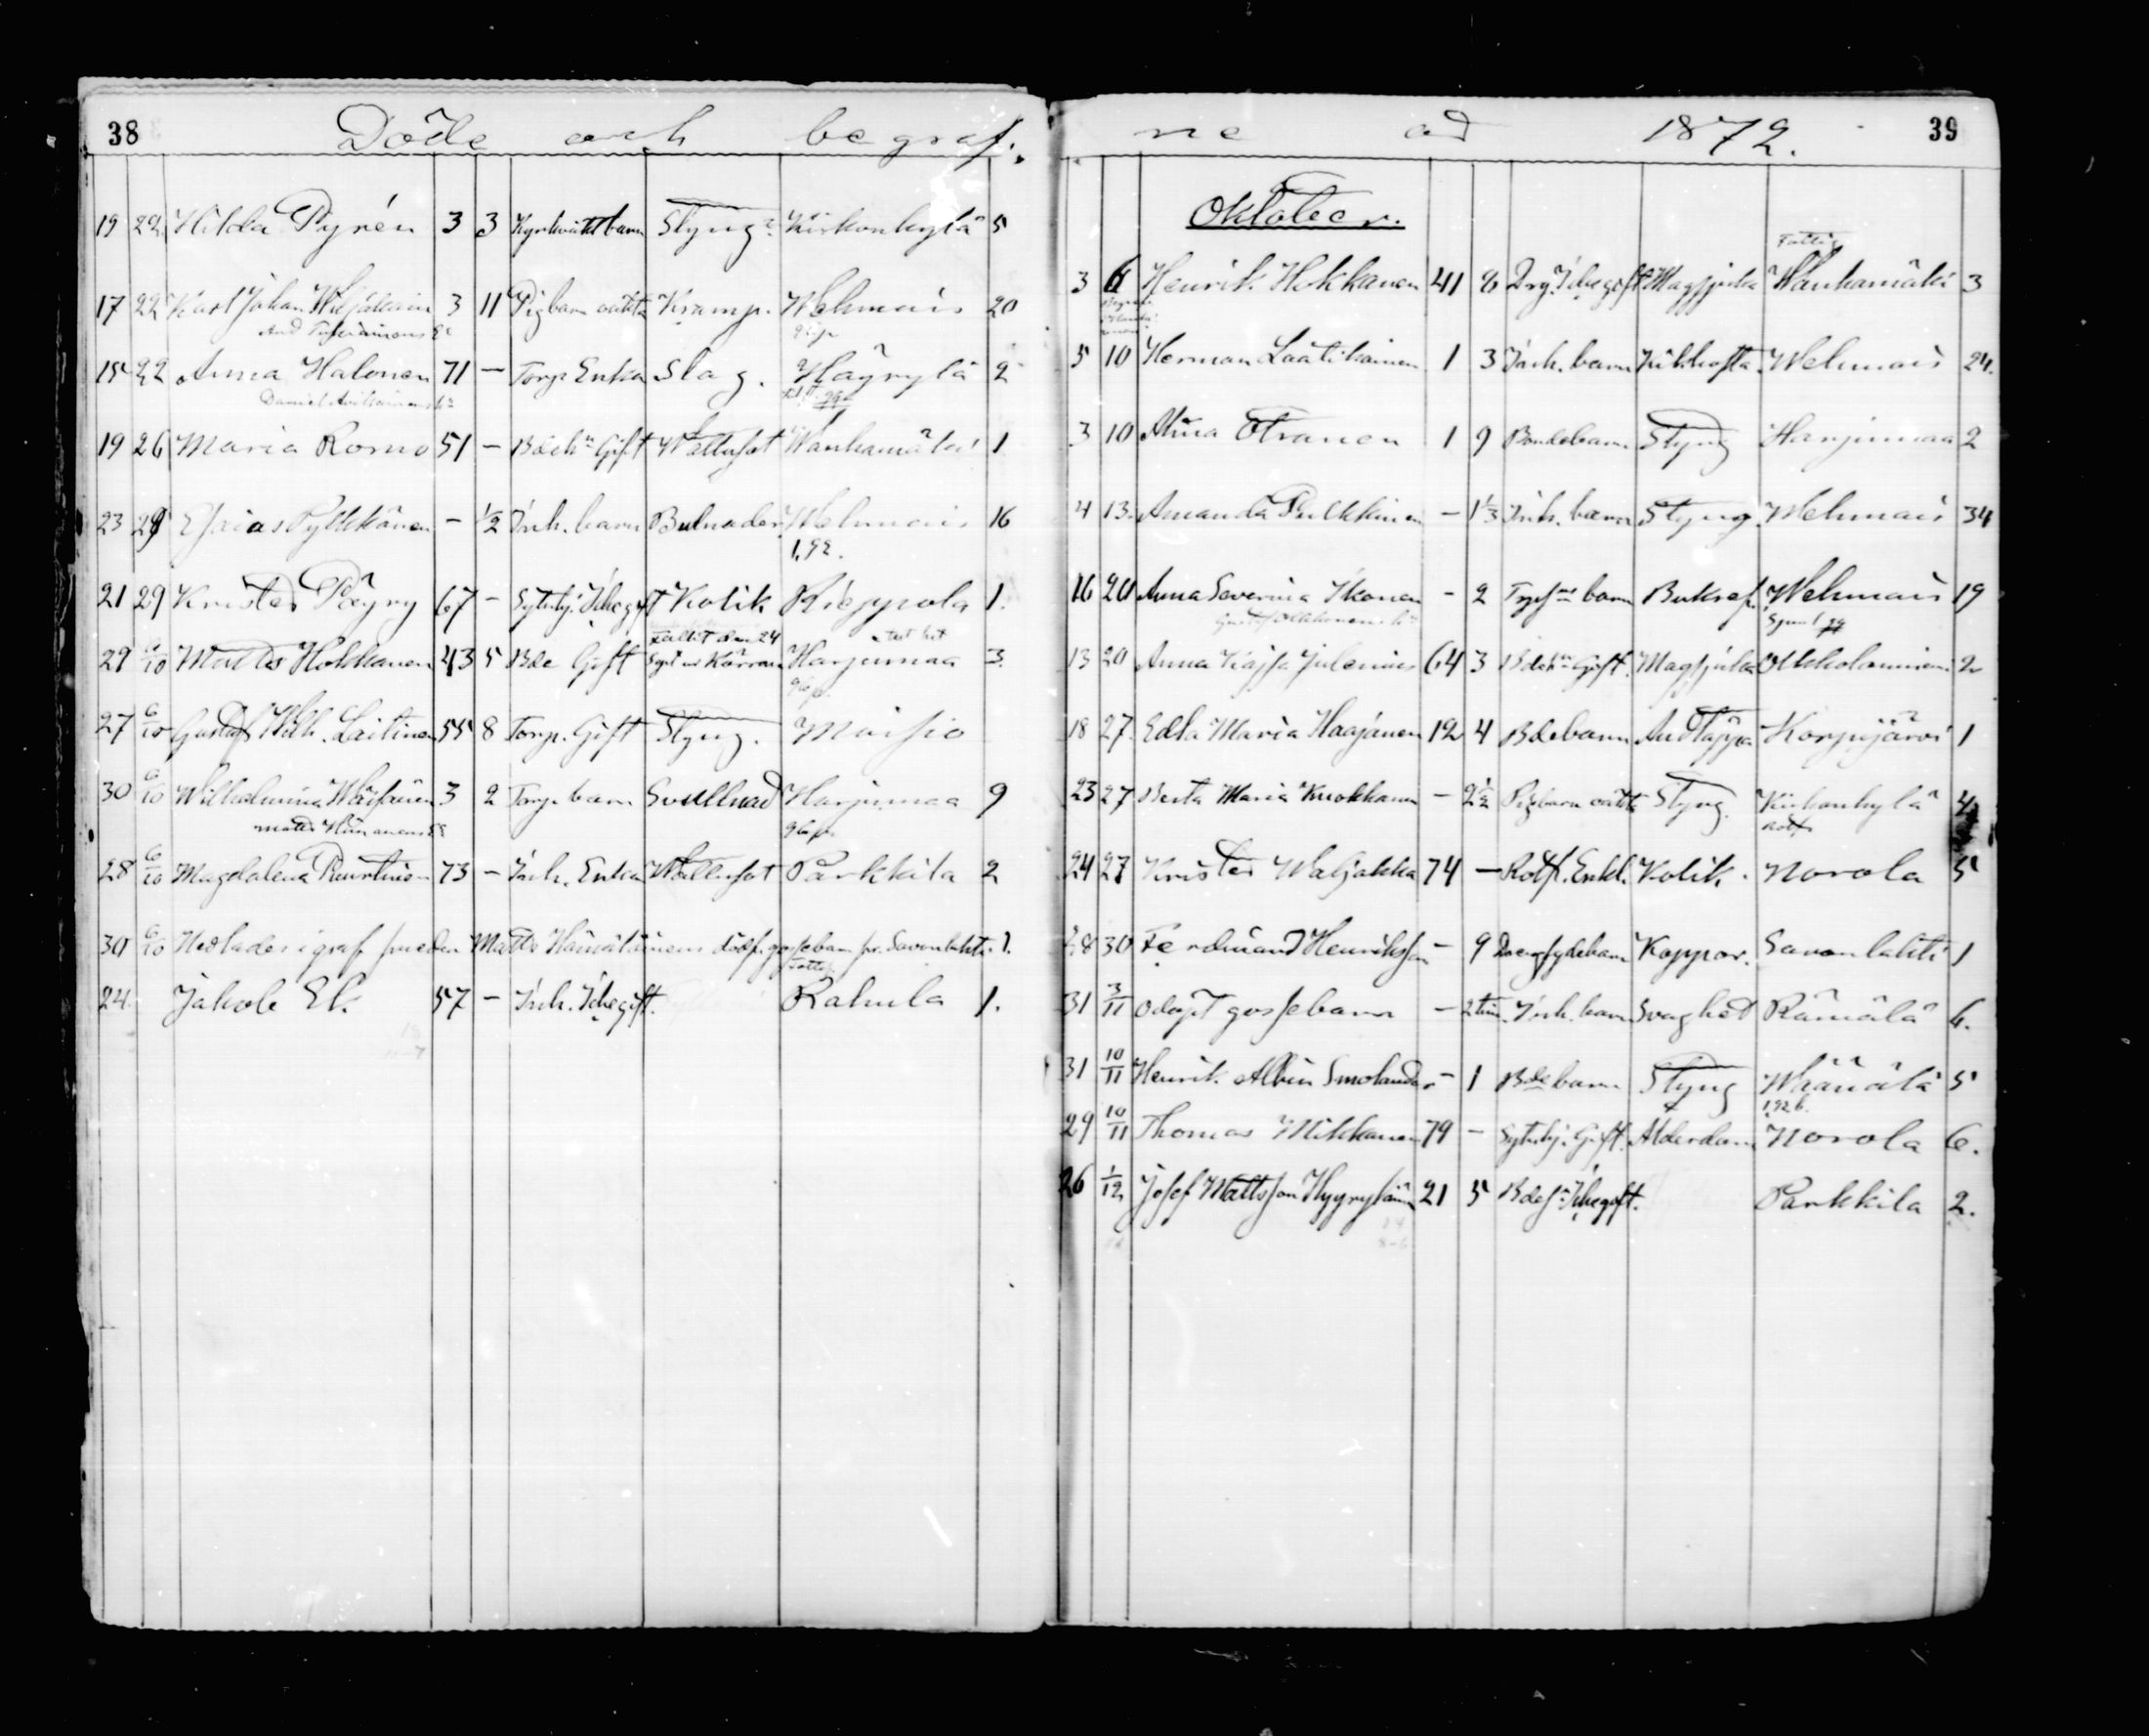 38 Döde och begraf-
19 22 Hilda Pyrén 3 3 barn Styng Kirkonkylä 5
17 22 Karl Johan 3 11 Pigbarn oäkta Kramp. Wehmais 20
15 22 Anna Halonen 71 — Torp. Enka Slag. Häyrylä 2
19 26 Maria Romo 51 — Gift Wattusot Wanhamäki 1
23 29 Esaias Pylkkänen — 1/2 Inh. barn Wehmais 16
1,92.
21 29 Krister Pöyry 67 — Sytnhj. Icke gift Kolik Rieppola 1.
29 6/10 Matts Hokkanen 43 5 Bde Gift Harjumaa 3.
27 6/10 Gustaf Wilh. Laitinen 55 8 Torp. Gift Styng. Maisio
30 6/10 Wilhelmina Wäisänen 3 2 Torp. barn Svullnad Harjumaa 9
28 6/10 Magdalena 73 — Inh. Enka Wattusot Parkkila 2
30 6/10 Nedlades i graf Matts Hämäläinens dödf. gossebarn fr. Savonlahti. 1.
24. Jakob Ek. 57 — Inh. Icke gift. Rahula 1.
ne ad 1872. 39
Oktober.
Fattig
3 6 Henrik Hokkanen 41 8 Drg. Icke gift Wanhamäki 3
5 10 Herman Laatikainen 1 3 Inh. barn Kikhosta Wehmais 24.
3 10 Otranen 1 9 Bondebarn Styng Harjumaa 2
4 13. Amanda Pulkkinen — 1/3 Inh. barn Styng. Wehmais 34
16 20 Anna Severina Ikonen — 2 barn Bukref. Wehmais 19
13 20 Anna Kajsa Julenius 64 3 Gift. Olkkolanniemi 2
18 27. Edla Maria Haajanen 12 4 Bdebarn Andtäppa Korpijärvi 1
23 27 Berta Maria Kuokkanen — 2 1/2 Pigbarn oäkta Styng. Kirkonkylä 4
24 27 Krister Waljakka 74 — Rotf. Enkl. Kolik. Norola 5
28 30 Ferdinand Henriksson — 9 Koppor. Savonlahti 1
31 3/11 Odöpt gossebarn — 2 tim. Inh. barn Svaghet Rämälä 6.
31 10/11 Henrik Albin Smolander — 1 Bdebarn Styng Wäänälä 5
29 10/11 Thomas Mikkanen 79 — Sytnhj. Gift. Ålderdom Norola 6.
26 1/12 Josef Mattsson 21 5 Icke gift. Parkkila 2.